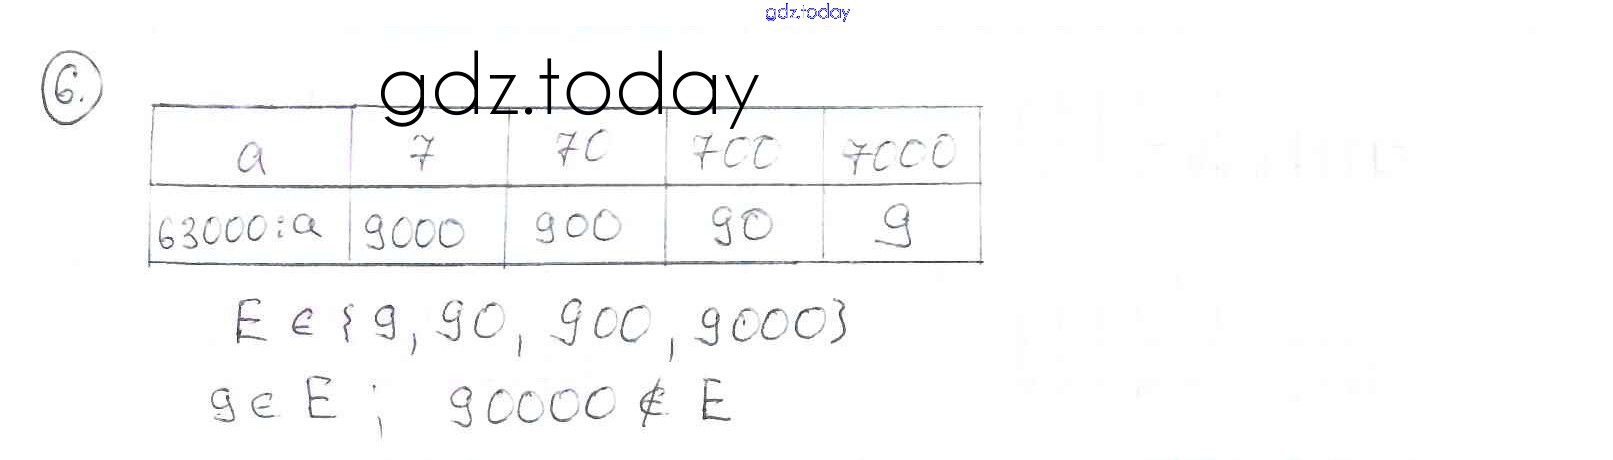 gdz.today
6.
gdz.today
a 7 70 700 7000
63000:a 9000 900 90 9
E ∈ {9, 90, 900, 9000}
9 ∈ E ; 90000 ∉ E